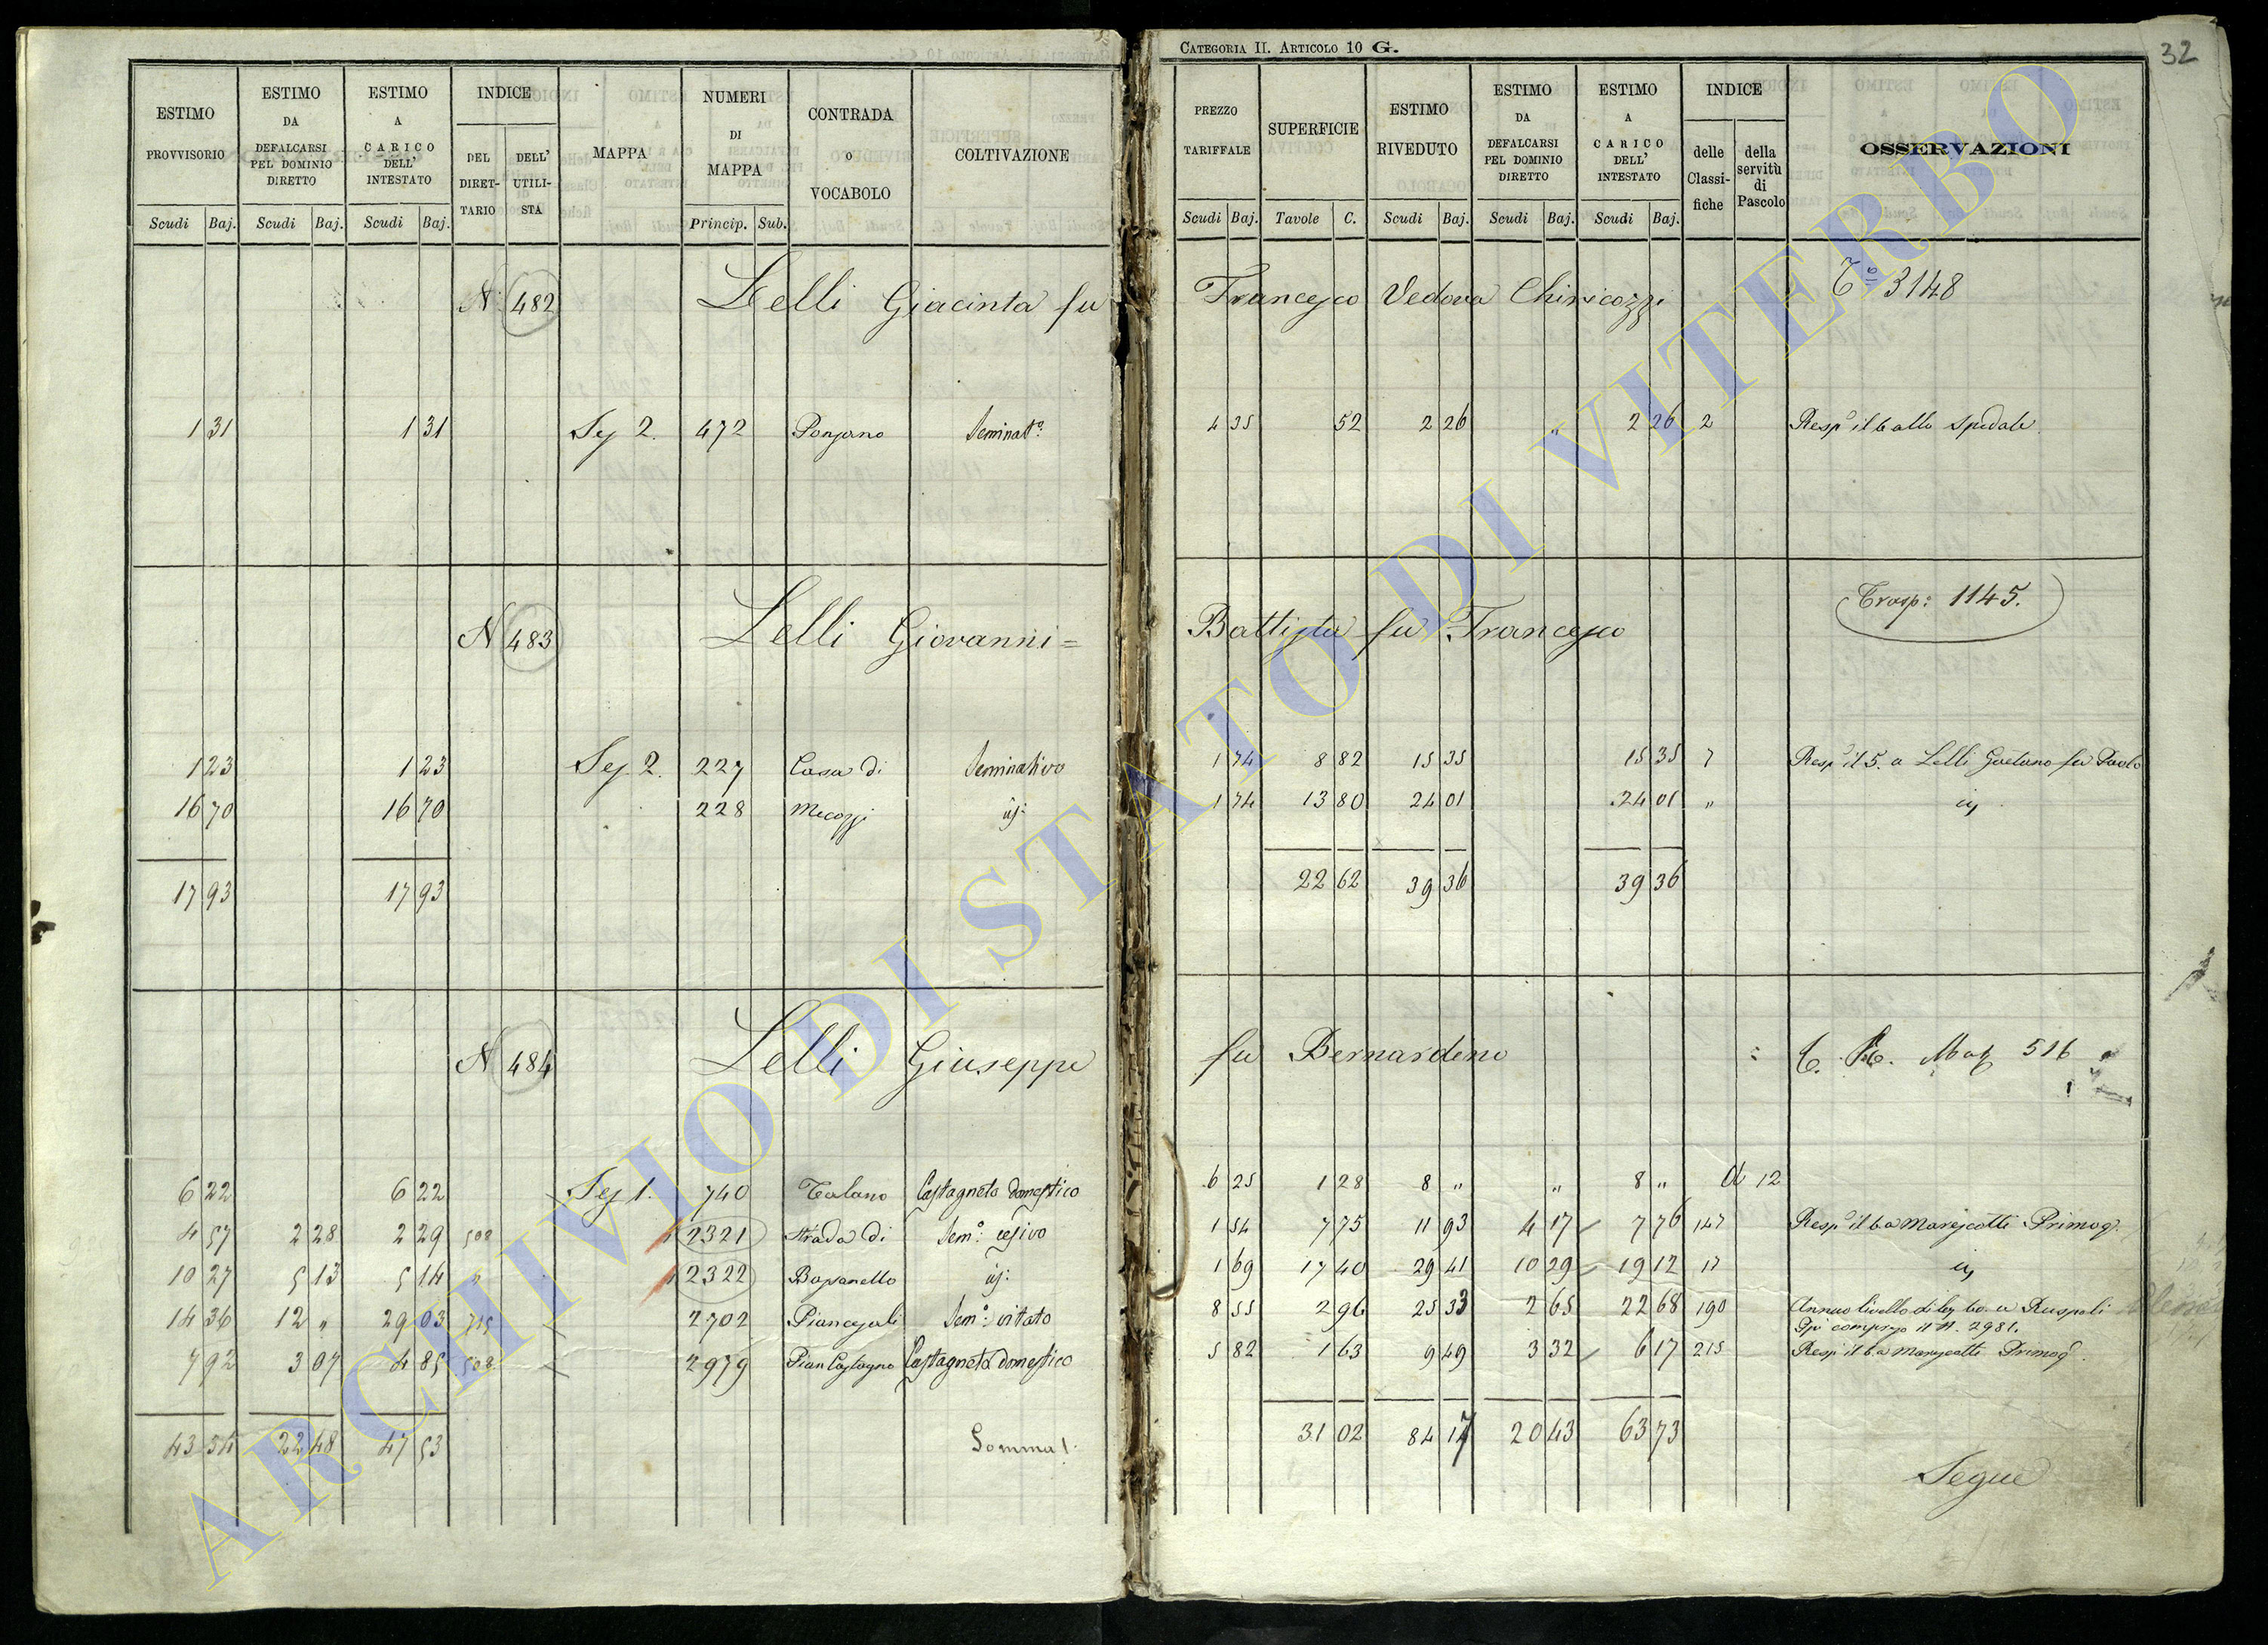 CATEGORIA II. ARTICOLO 10 G.
32
ESTIMO PROVVISORIO Scudi Baj.
ESTIMO DA DEFALCARSI PEL DOMINIO DIRETTO Scudi Baj.
ESTIMO A CARICO DELL' INTESTATO Scudi Baj.
INDICE DEL DIRET-TARIO DELL' UTILI-STA
MAPPA
NUMERI DI MAPPA Princip. Sub.
CONTRADA o VOCABOLO
COLTIVAZIONE
PREZZO TARIFFALE Scudi Baj.
SUPERFICIE Tavole C.
ESTIMO RIVEDUTO Scudi Baj.
ESTIMO DA DEFALCARSI PEL DOMINIO DIRETTO Scudi Baj.
ESTIMO A CARICO DELL' INTESTATO Scudi Baj.
INDICE delle Classi-fiche della servitù di Pascolo
OSSERVAZIONI
N. 482 Lelli Giacinta fu Francesco Vedova Chiricozzi 3148
1 31 1 31 Sez 2. 472 Ponzano Seminat.o 4 35 52 2 26 " 2 26 2 Resp. il 6 allo Spedale
N 483 Lelli Giovanni = Battista fu Francesco Trasp: 1145.
1 23 1 23 Sez 2. 227 Casa di Seminativo 1 74 8 82 15 35 15 35 7 Resp. il 5. a Lelli Gaetano fu Paolo
16 70 16 70 228 Mecozzi 1 74 13 80 24 01 24 01 "
17 93 17 93 22 62 39 36 39 36
N 484 Lelli Giuseppe fu Bernardino 516
6 22 6 22 Sez 1. 740 Talano Castagneto domestico 6 25 1 28 8 " " 8 " 12
4 57 2 28 2 29 508 2321 Strada di Sem.o 1 54 7 75 11 93 4 17 7 76 147 Resp. il 6 a Marescotti Primog.
10 27 5 13 5 14 " 2322 Bassanello 1 69 17 40 29 41 10 29 19 12 17
14 36 12 " 29 03 2702 Sem.o vitato 8 55 2 96 25 33 2 65 22 68 190 Annuo livello di a Ruspoli
compreso il N. 2981.
7 92 3 07 4 85 508 2979 Pian Castagno Castagneto domestico 5 82 1 63 9 49 3 32 6 17 215 Resp. il 6 a Marescotti Primog.
43 34 22 48 47 53 Somma 31 02 84 17 20 43 63 73
Segue
ARCHIVIO DI STATO DI VITERBO